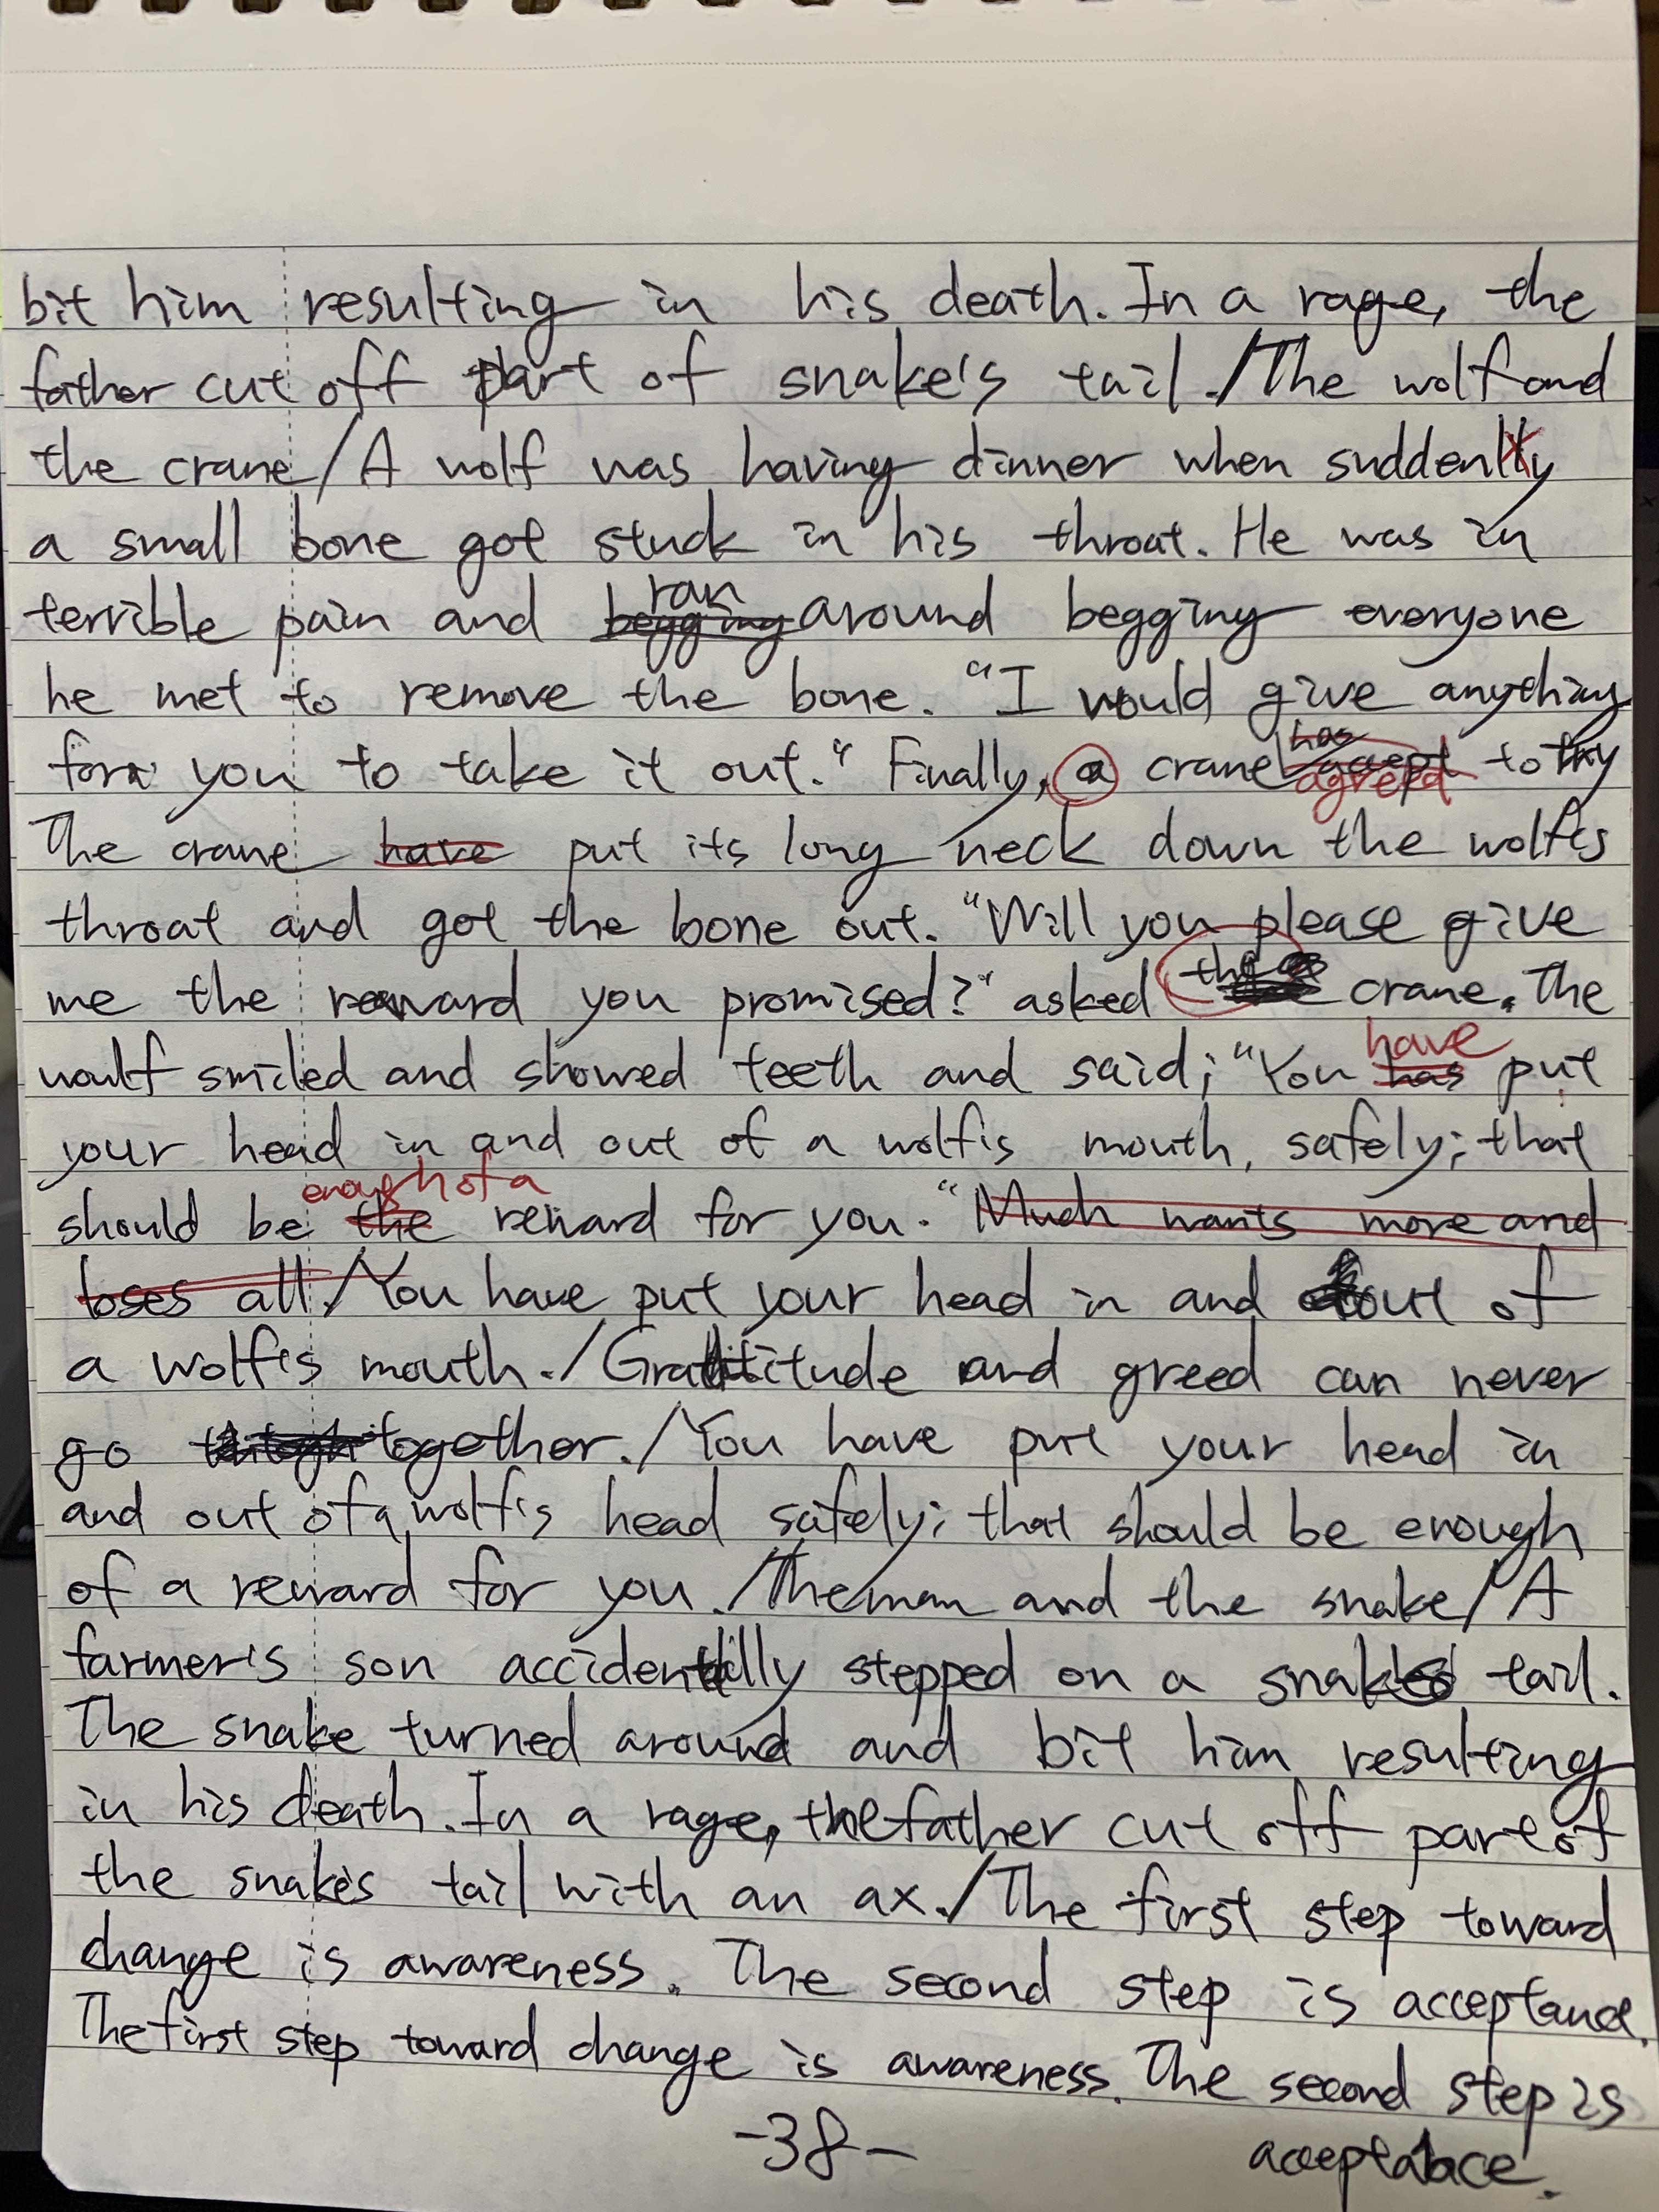 bit him resulting in his death. In a rage, the
father cut off part of snake's tail./The wolf and
the crane/A wolf was having dinner when suddenly
a small bone got stuck in his throat. He was in
terrible pain and ran around begging everyone
he met to remove the bone. "I would give anything
for you to take it out." Finally, a crane agreed to try
The crane put its long neck down the wolf's
throat and got the bone out. "Will you please give
me the reward you promised?" asked the crane. The
woulf smiled and showed teeth and said; "You have put
your head in and out of a wolf's mouth, safely; that
should be enough of a reward for you." Much wants more and
loses all./You have put your head in and out of
a wolf's mouth./Gratitude and greed can never
go together./You have put your head in
and out of a wolf's head safely; that should be enough
of a reward for you./The man and the snake/A
farmer's son accidentally stepped on a snake's tail.
The snake turned around and bit him resulting
in his death. In a rage, the father cut off part of
the snake's tail with an ax./The first step toward
change is awareness. The second step is acceptance.
The first step toward change is awareness. The second step is
acceptance.
-38-